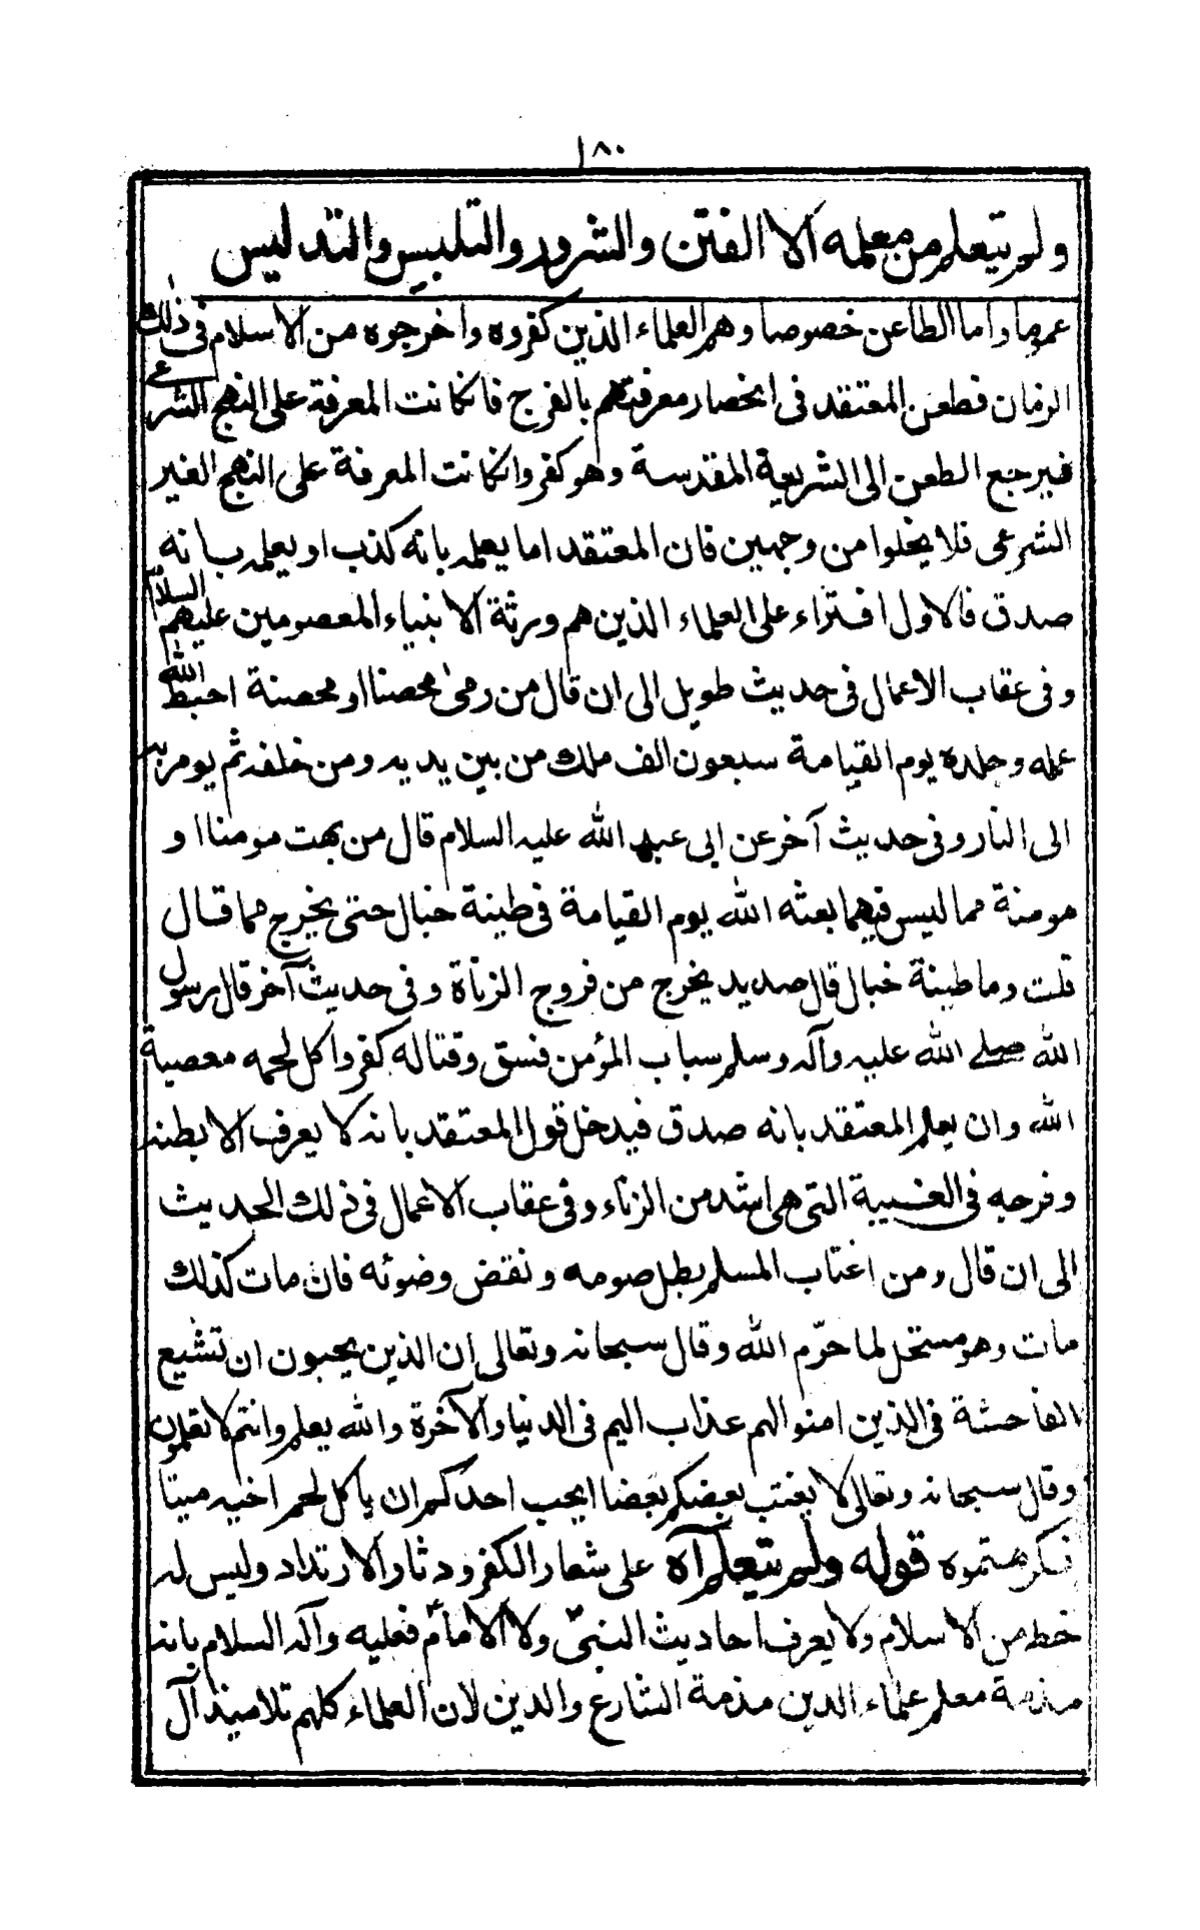 ١٨٠
ولم يتعلم من معلمه الا الفتن والشرور والتلبيس والتدليس
عموما واما الطاعن خصوصا وهم العلماء الذين كفروه واخرجوه من الاسلام فى ذلك
الزمان فطعن المعتقد فى انحصار معرفتهم بالفرج فانكانت المعرفة على النهج الشرعى
فيرجع الطعن الى الشريعة المقدسة وهو كفر وانكانت المعرفة على النهج الغير
الشرعى فلا يخلوا من وجهين فان المعتقد اما يعلم بانه كذب او يعلم بانه
صدق فالاول افتراء على العلماء الذين هم ورثة الانبياء المعصومين عليهم السلام
وفى عقاب الاعمال فى حديث طويل الى ان قال من رمى محصنا او محصنة احبط الله
عمله وجلده يوم القيامة سبعون الف ملك من بين يديه ومن خلفه ثم يومر به
الى النار وفى حديث آخر عن ابى عبد الله عليه السلام قال من بهت مومنا او
مومنة مما ليس فيهما بعثه الله يوم القيامة فى طينة خبال حتى يخرج مما قال
قلت وما طينة خبال قال صديد يخرج من فروج الزناة وفى حديث آخر قال رسول
الله صلے الله عليه وآله وسلم سباب المؤمن فسق وقتاله كفر واكل لحمه معصية
الله وان يعلم المعتقد بانه صدق فيدخل قول المعتقد بانه لا يعرف الا بطنه
وفرجه فى الغيبة التى هى اشد من الزناء وفى عقاب الاعمال فى ذلك الحديث
الى ان قال ومن اغتاب المسلم بطل صومه ونقض وضوئه فان مات كذلك
مات وهو مستحل لما حرّم الله وقال سبحانه وتعالى ان الذين يحبون ان تشيع
الفاحشة فى الذين امنوا لهم عذاب اليم فى الدنيا والآخرة والله يعلم وانتم لا تعلمون
وقال سبحانه وتعالى لا يغتب بعضكم بعضا ايحب احدكم ان ياكل لحم اخيه ميتا
فكرهتموه قوله ولم يتعلم آه على شعار الكفر ودثار الارتداد وليس له
حظ من الاسلام ولا يعرف احاديث النبىّ ولا الامامّ فعليه وآله السلام بانه
مذمة معلم علماء الدين مذمة الشارع والدين لان العلماء كلهم تلاميذ آل